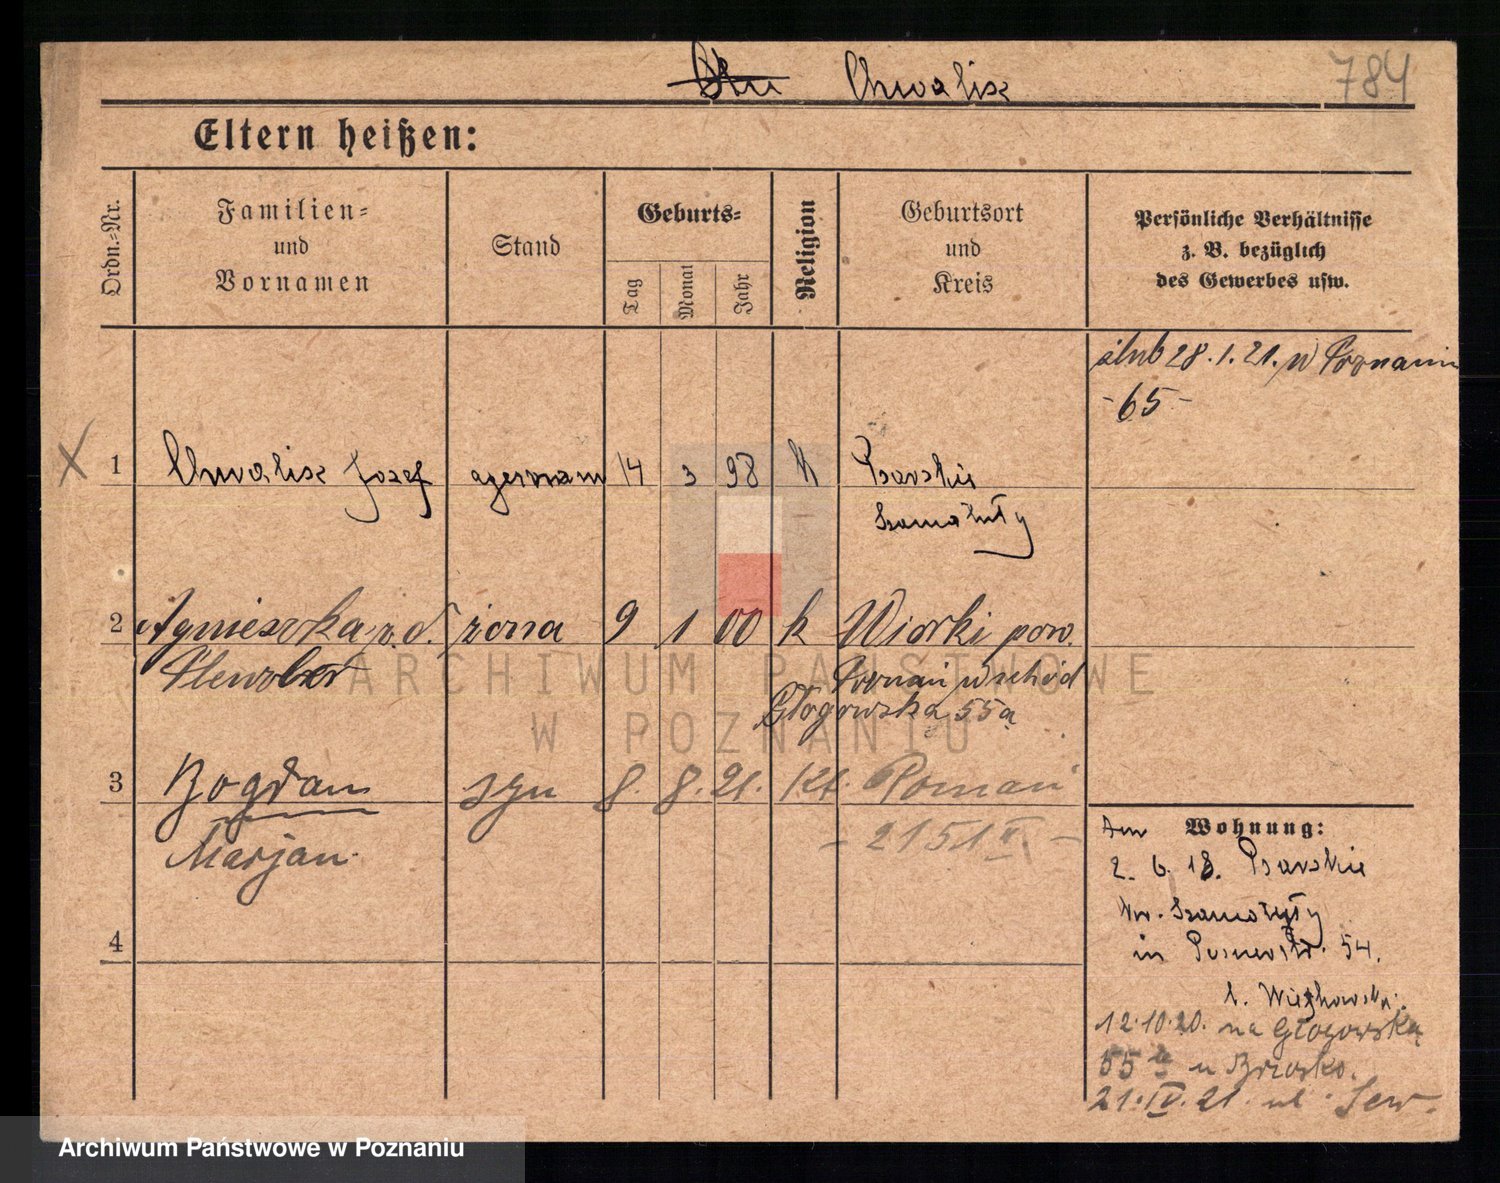 Chwalisz 784
Eltern heißen:
Ordn.-Nr.
Familien-
und
Vornamen
Stand
Geburts-
Tag
Monat
Jahr
Religion
Geburtsort
und
Kreis
Persönliche Verhältnisse
z. B. bezüglich
des Gewerbes usw.
ślub 28.1.21. w Poznaniu
-65-
X 1 Chwalisz Jozef 14 3 98 K Psarskie
Szamotuły
2 Agnieszka z d. żona 9 1 00 k Wiorki pow.
Poznań wschód
Głogowska 55a
3 Bogdan syn 8. 8. 21. Kt. Poznań
Marjan
- 2151 II -
4
Wohnung:
2. 6. 18. Psarskie
Kr. Szamotuły
in 54.
b.
12.10.20. na Głogowską
55 a u
21.IV.21. ul.
ARCHIWUM PAŃSTWOWE
W POZNANIU
Archiwum Państwowe w Poznaniu